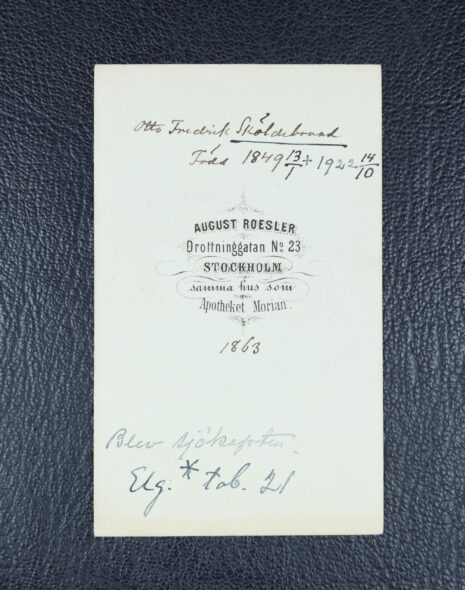 Otto Fredrik Sköldebrand
Född 1849 13/1 + 1922 14/10
AUGUST ROESLER
Drottninggatan No 23
STOCKHOLM
samma hus som
Apotheket Morian.
1863
Blev sjökapten.
Elg. * tab. 21